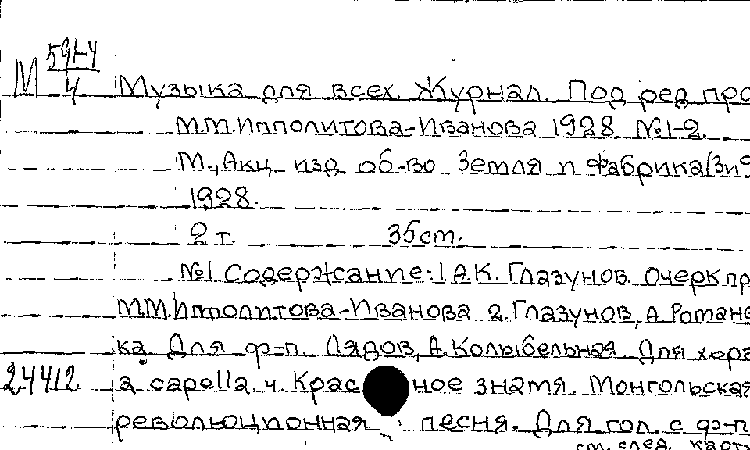 М 591-4/4 Музыка для всех. Журнал. Под ред про
М.М.Ипполитова-Иванова 1928. №1-2.
М., Акц изд об-во Земля и Фабрика(ЗиФ
1928.
2 т. 35 ст.
№1 Содержание: 1 А.К. Глазунов. Очерк пр
М.М.Ипполитова-Иванова 2. Глазунов, А. Романс
ка. Для ф-п. Лядов, А. Колыбельная. Для хора
24412 a capella. 4. Красное знамя. Монгольская
революционная песня. Для гол. с ф-п
см. след. карт